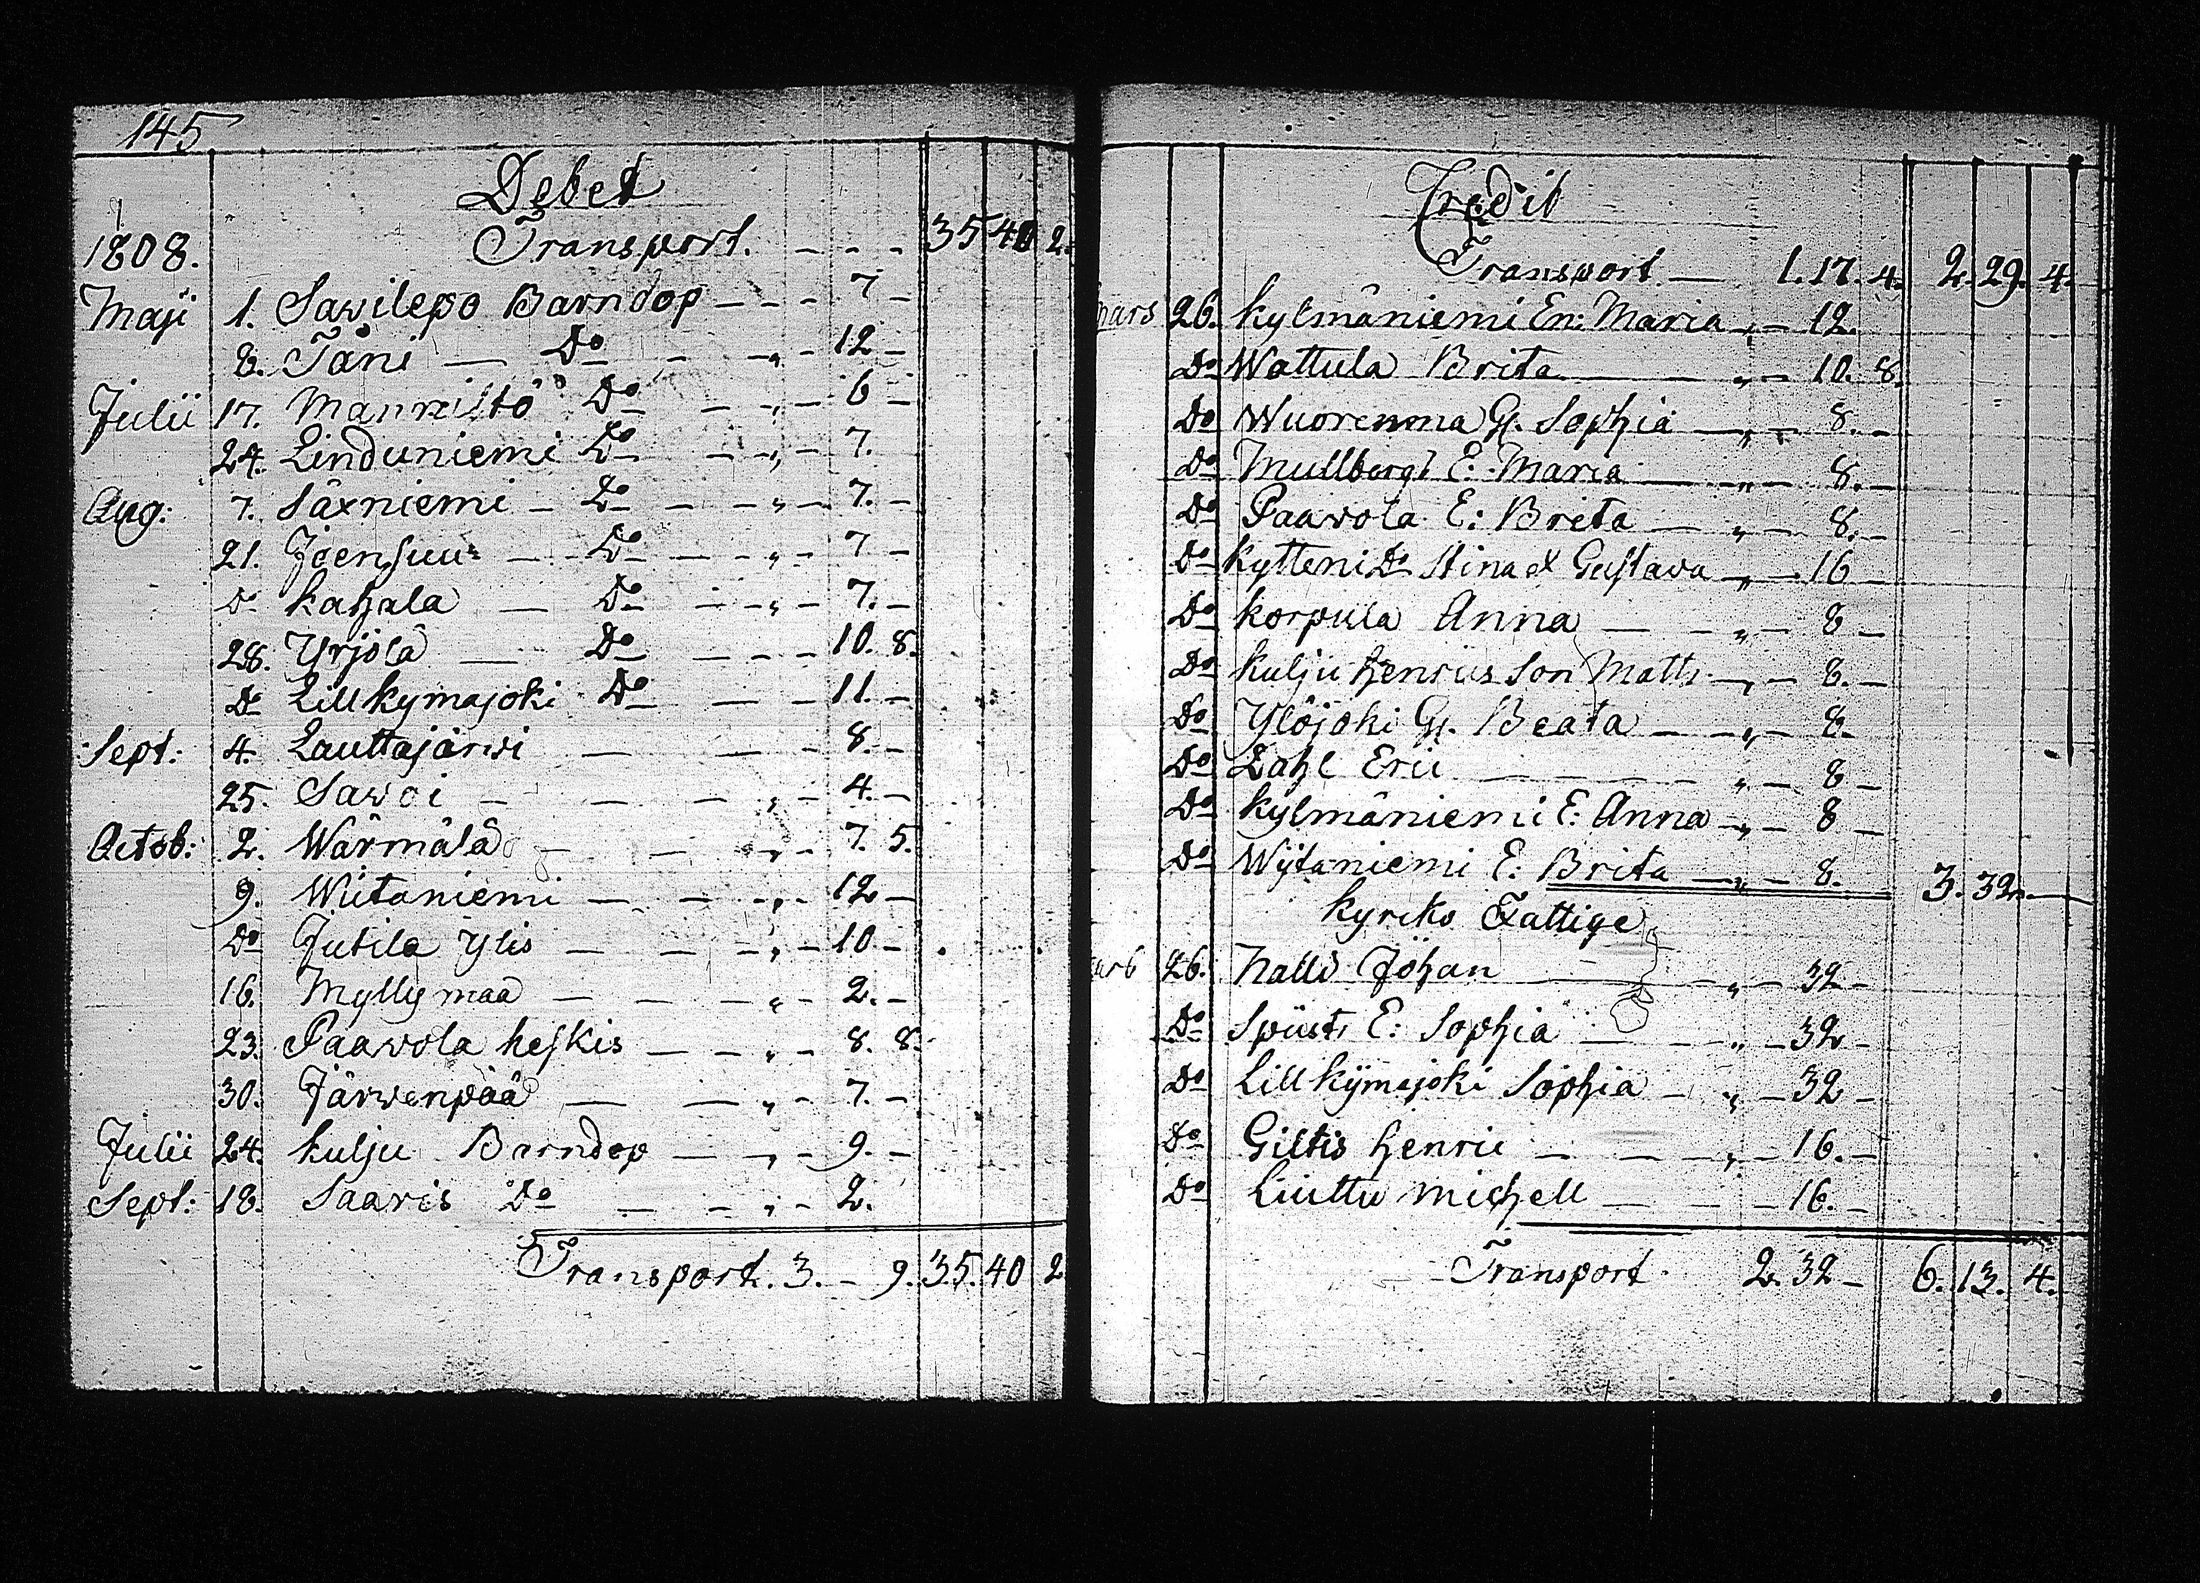 145
Debet
1808. Transport. - - - 35 40 2.
Maji 1. Sawilepo Barndop - - - 7 -
8. Täni — Do - - „ - 12 -
Julii 17. Manniltö Do - - „ - 6 -
24. Linduniemi Do - - „ - 7.
Aug: 7. Säxniemi - Do - - „ - 7. -
21. Joensuu - - Do - - „ - 7 -
Do Kahala — Do - - „ - 7. -
28. Yrjölä — Do - - - 10. 8.
Do Lillkymajoki Do - - 11. -
Sept: 4. Lauttajärwi - - - 8. -
25. Sawoi - - - „ - 4. -
Octob: 2. Wärmälä - - „ - 7. 5.
9. Wiitaniemi - - - „ - 12 -
Do Jutila Ylis - - - „ - 10 -
16. Myllymaa - - - „ - 2. -
23. Paawola heskis - - „ - 8. 8.
30. Järwenpää - - „ - 7. -
Julii 24. Kulju Barndop - - „ - 9. -
Sept: 18. Saaris Do - - „ - 2.
Transport. 3. - 9. 35. 40 2
Credit
Transport — 1. 17. 4. 2. 29. 4.
mars 26. Kylmäniemi En: Maria „ - 12.
Do Wattula Brita — „ - 10. 8.
Do Wuorenma Gl. Sophia — „ - 8. -
Do Mullbergs E: Maria — „ - 8. -
Do Paawola E: Brita — „ - 8. -
Do Kytteni Do Stina et Gustava „ - 16 -
Do Korpula Anna — - „ - 8 -
Do Kulju Henrics Son Matts - „ - 8. -
Do Ylöjoki Gl. Beata - - „ - 8. -
Do Dahl Eric - - - „ - 8 -
Do Kylmäniemi E: Anna - „ - 8 -
Do Wijtaniemi E: Brita - „ - 8. 3. 32. -
Kyrko Fattige
26. Nalli Johan — - „ - 32 -
Do Spiist E: Sophia - - „ - 32 -
Do Lillkÿmajoki Sophia - „ - 32 -
Do Giltis Henric - - - „ - 16. -
Do Liuttu Michell - - - 16. -
Transport 2. 32 - 6. 13. 4.